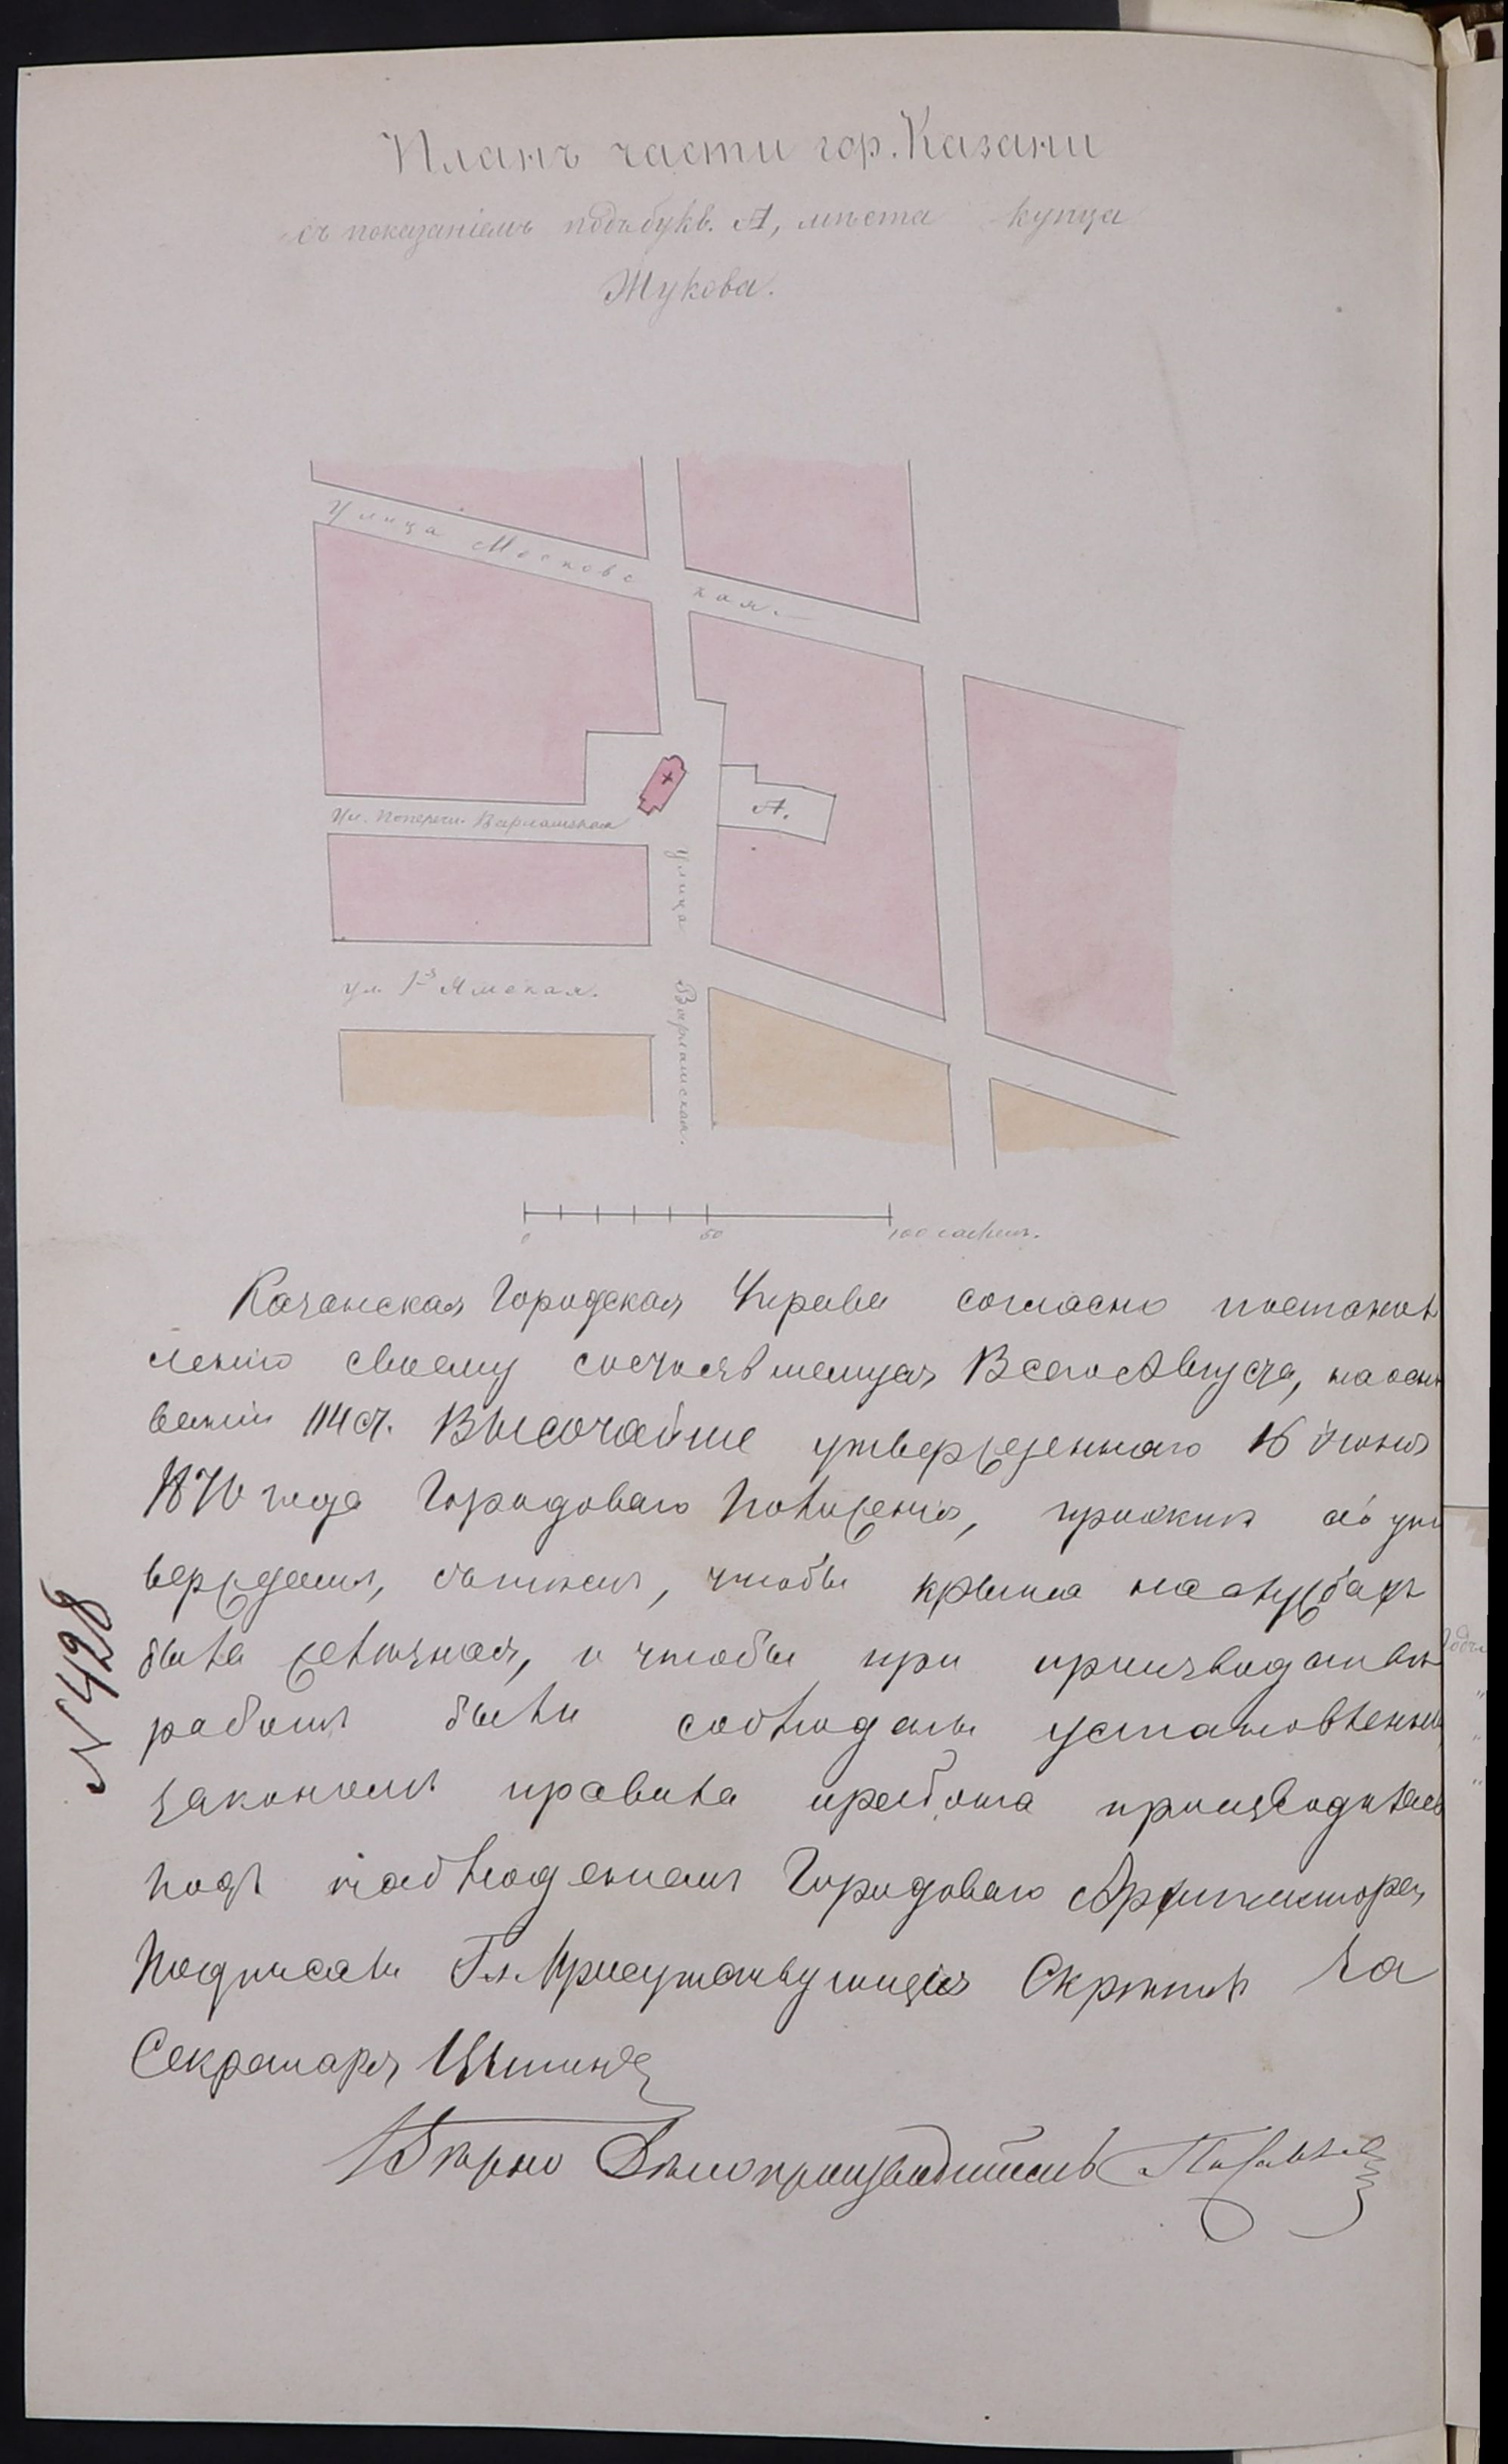 Планъ части гор. Казани
съ показаніемъ подъ букв. А, мѣста купца
Жукова.
Улица Московс кая.
А.
Ул. Попереч. Варламская
Улица Варламская.
ул. 1-я Ямская.
0 50 100 сажен.
Казанская Городская Управа согласно постанов
ленію своему состоявшемуся сего Августа, на осно
ваніи 114 ст. Высочайше утвержденнаго 16 Іюня
1870 года Городоваго Положенія, проэктъ
верждаетъ, съ тѣмъ, чтобы крыша на службахъ
была желѣзная, и чтобы при производствѣ
работъ были соблюдены установленныя
закономъ правила и работа производилась
подъ наблюденіемъ Городоваго Архитектора,
Подписали Гл. Присутствующіе Скрѣпилъ За
Секретаря
Вѣрно Дѣлопроизводитель
№ 428